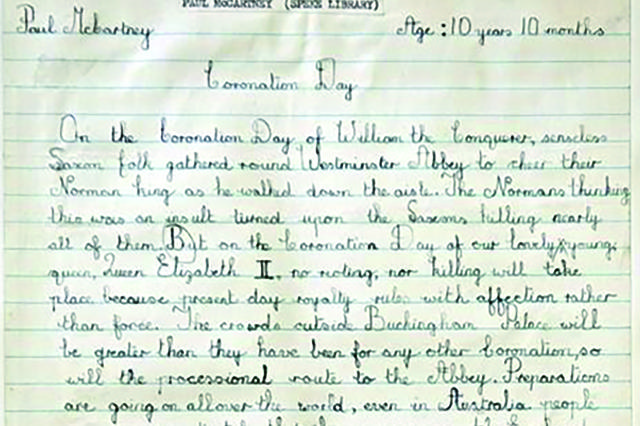 PAUL McCARTNEY (SPEKE LIBRARY)
Paul McCartney Age : 10 years 10 months
Coronation Day
On the Coronation Day of William the Conquerer, senseless
Saxon folk gathered round Westminster Abbey to cheer their
Norman king as he walked down the aisle. The Normans thinking
this was an insult turned upon the Saxons killing nearly
all of them. But on the Coronation Day of our lovely young
queen, Queen Elizabeth II, no rioting, nor killing will take
place because present day royalty rules with affection rather
than force. The crowds outside Buckingham Palace will
be greater than they have been for any other Coronation, so
will the processional route to the Abbey. Preparations
are going on all over the world, even in Australia people